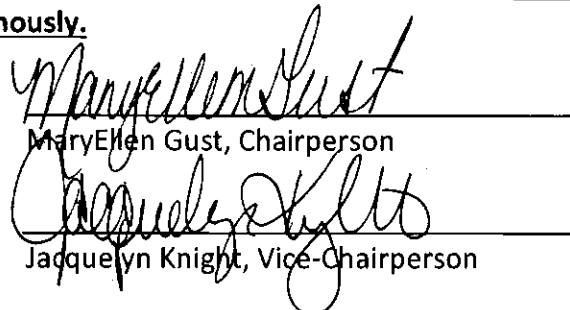 nously.
MaryEllen Gust
MaryEllen Gust, Chairperson
Jacquelyn Knight
Jacquelyn Knight, Vice-Chairperson